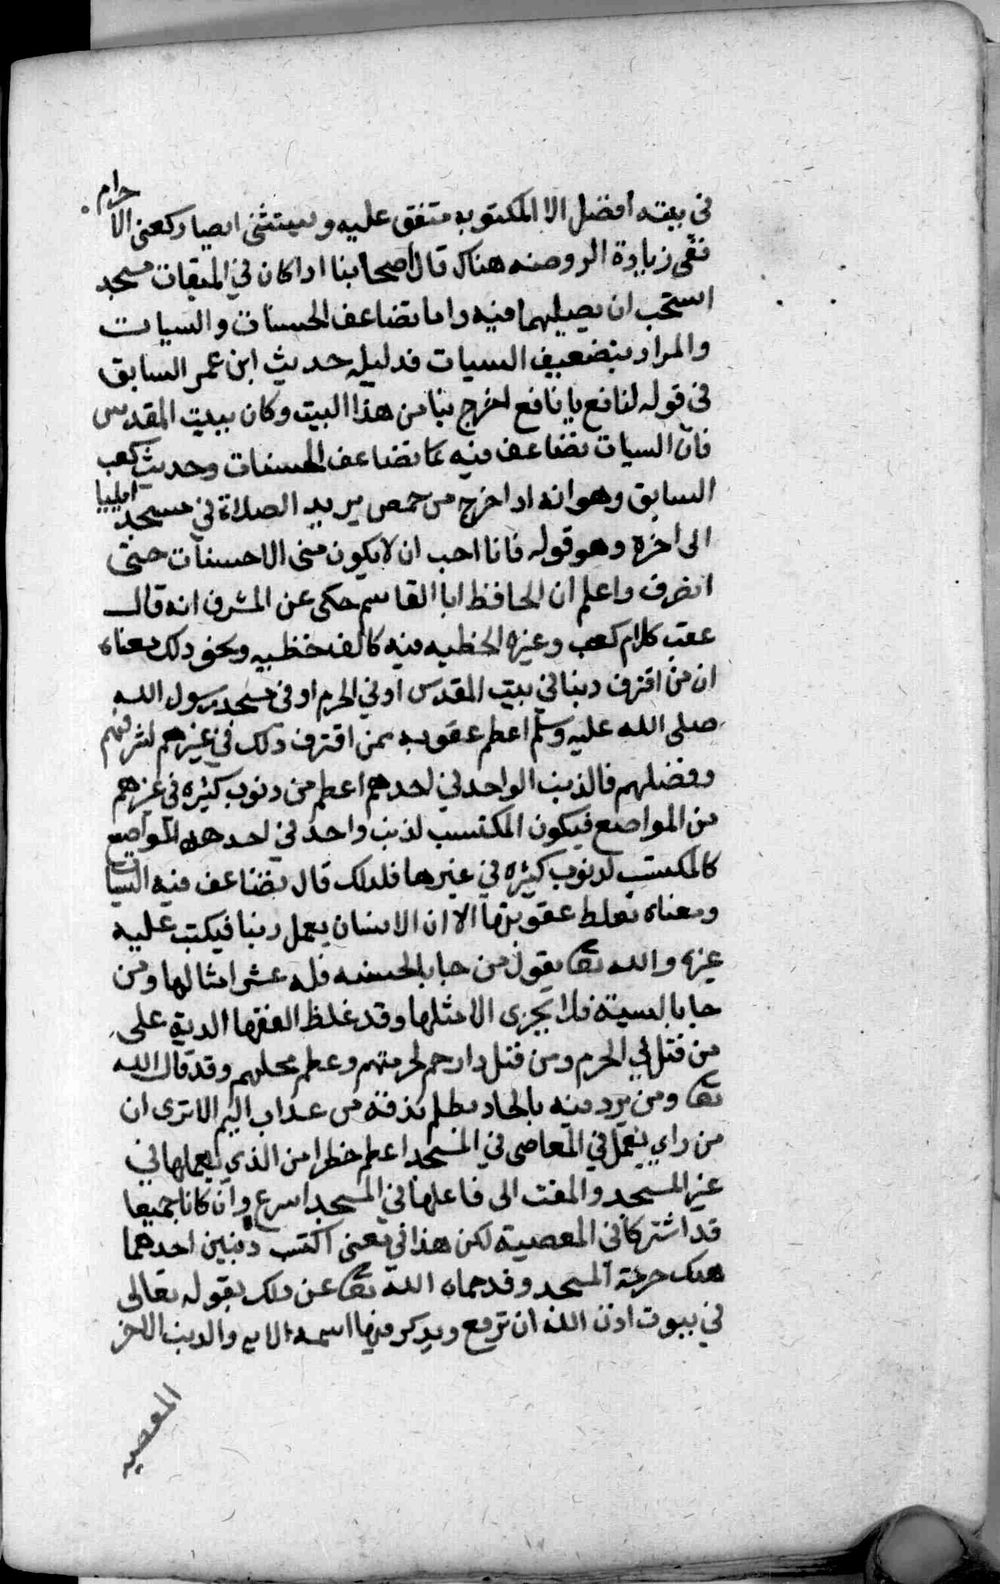 في بيته أفضل الا المكتوبة متفق عليه ويستثنى ايضا ركعتى الاحرام
ففي زيادة الروضه هناك قال أصحابنا اذا كان في الميقات مسجد
استحب ان يصليهما فيه واما تضاعف الحسنات والسيات
والمراد بتضعيف السيات فدليله حديث ابن عمر السابق
في قوله لنافع يا نافع اخرج بنا من هذا البيت وكان ببيت المقدس
فان السيات تضاعف فيه كما تضاعف الحسنات وحديث كعب
السابق وهو انه اذا خرج من حمص يريد الصلاة في مسجد ايليا
الى اخره وهو قوله فانا احب ان لا يكون منى الا حسنات حتى
انصرف واعلم ان الحافظ ابا القاسم حكى عن المشرف انه قال
عقب كلام كعب وغيره الخطيه فيه كالف خطيه ونحو ذلك معناه
ان من اقترف ذنبا في بيت المقدس او في الحرم او في مسجد رسول الله
صلى الله عليه وسلم اعظم عقوبه ممن اقترف ذلك في غيرهم لشرفهم
وفضلهم فالذنب الواحد في احدهم اعظم من ذنوب كثيره في غيرهم
من المواضع فيكون المكتسب لذنب واحد في احد هذه المواضع
كالمكتسب لذنوب كثيره في غيرها فلذلك قال تضاعف فيه السيات
ومعناه تغلظ عقوبتها الا ان الانسان يعمل ذنبا فيكتب عليه
غيره والله تعا يقول من جا بالحسنه فله عشر امثالها ومن
جا بالسيئة فلا يجزى الا مثلها وقد غلظ الفقها الدية على
من قتل في الحرم ومن قتل ذا رحم لحرمتهم وعظم محلهم وقد قال الله
تعا ومن يرد فيه بالحاد بظلم نذقه من عذاب اليم الا ترى ان
من راي يعمل في المعاصى في المسجد اعظم خطرا من الذي يعملها في
غير المسجد والمقت الى فاعلها في المسجد اسرع وان كانا جميعا
قد اشتركا في المعصية لكن هذا في معنى اكتسب ذنبين احدهما
هتك حرمة المسجد وقد حماه الله تعا عن ذلك بقوله تعالى
في بيوت اذن الله ان ترفع ويذكر فيها اسمه الايه والذنب الاخر
المعصيه